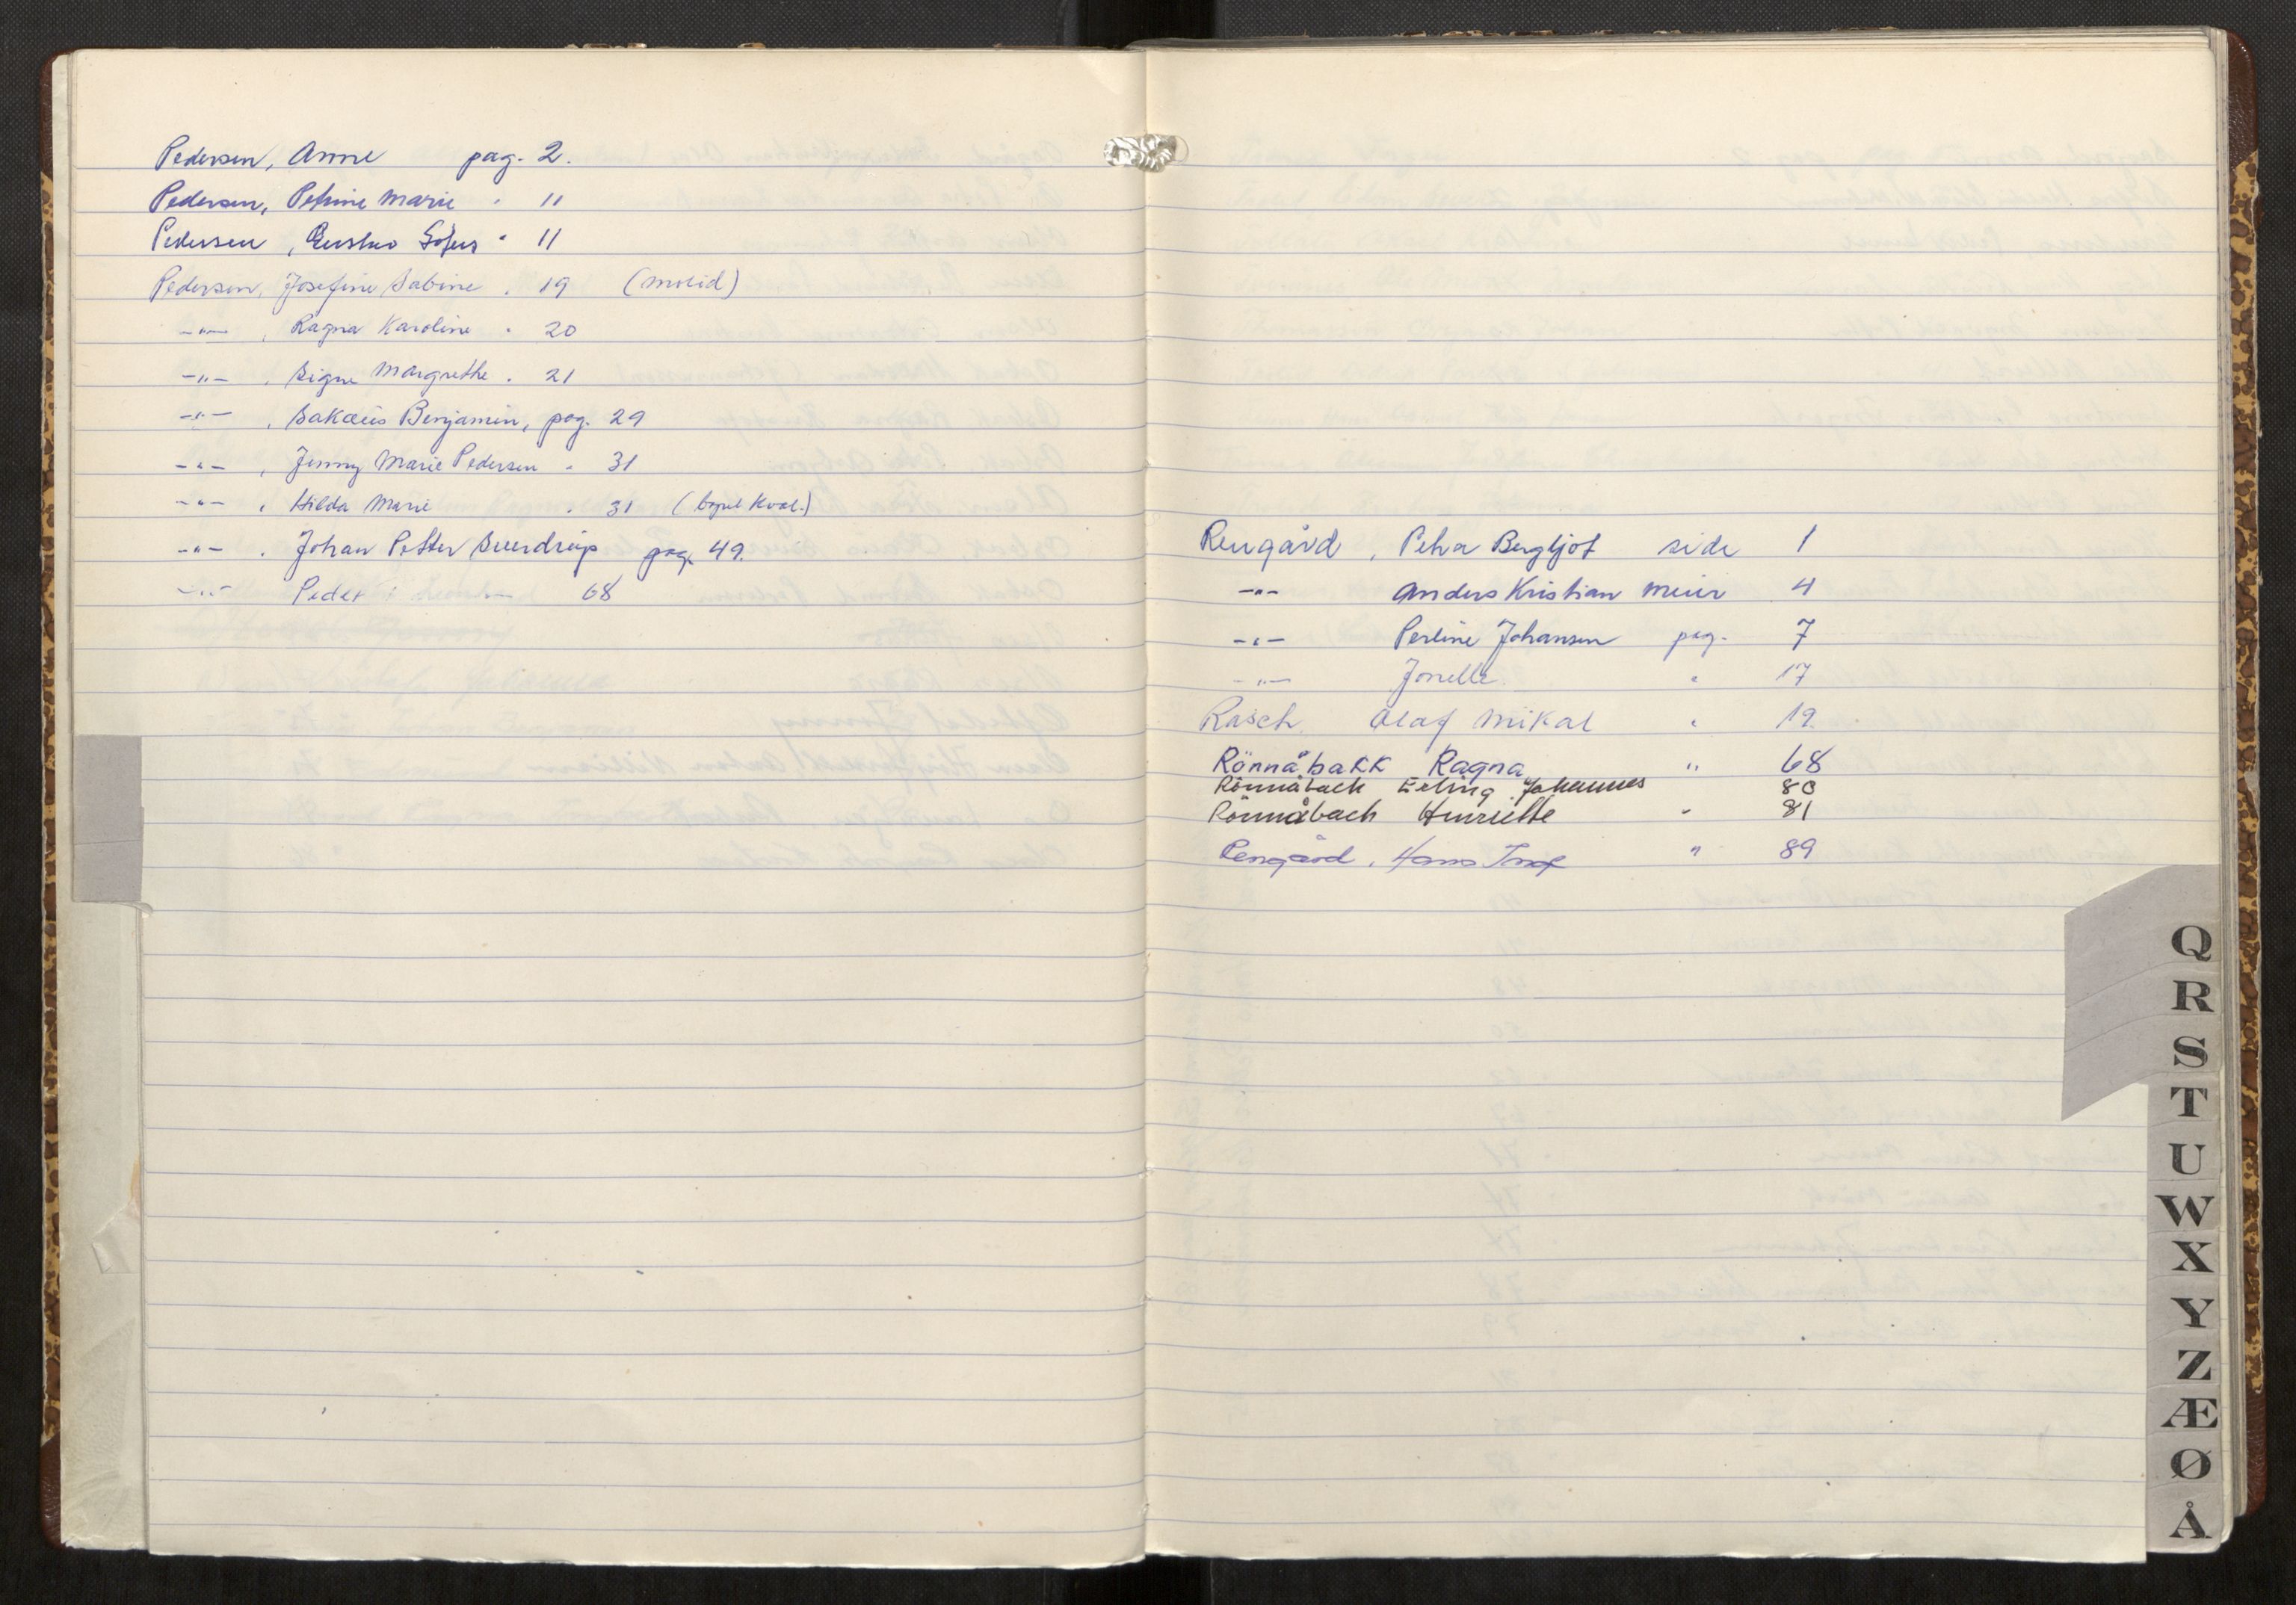 Pedersen, Anne pag. 2.
Pedersen, Petrine Marie " 11
Pedersen, Gustav Sofus " 11
Pedersen, Josefine Sabine " 19 (Molid)
-"- , Ragna Karoline " 20
-"- , Signe Margrethe " 21
-"- , Sakæus Benjamin, pag. 29
-"- , Jenny Marie Pedersen " 31
-"- , Hilda Marie " 31
-"- , Johan Petter Sverdrup pag. 49.
-"- Peder 68
Rengård, Petra Bergljot side 1
-"- Anders Kristian Meier 4
-"- Perline Johansen pag. 7
-"- Jonelle " 17
Rasch Olaf Mikal " 19.
Rönnåbakk Ragna " 68
Rönnåback Erling Johannes 80
Rönnåbach Henriette " 81
Rengård, Hans " 89
Q
R
S
T
U
W
X
Y
Z
Æ
Ø
Å